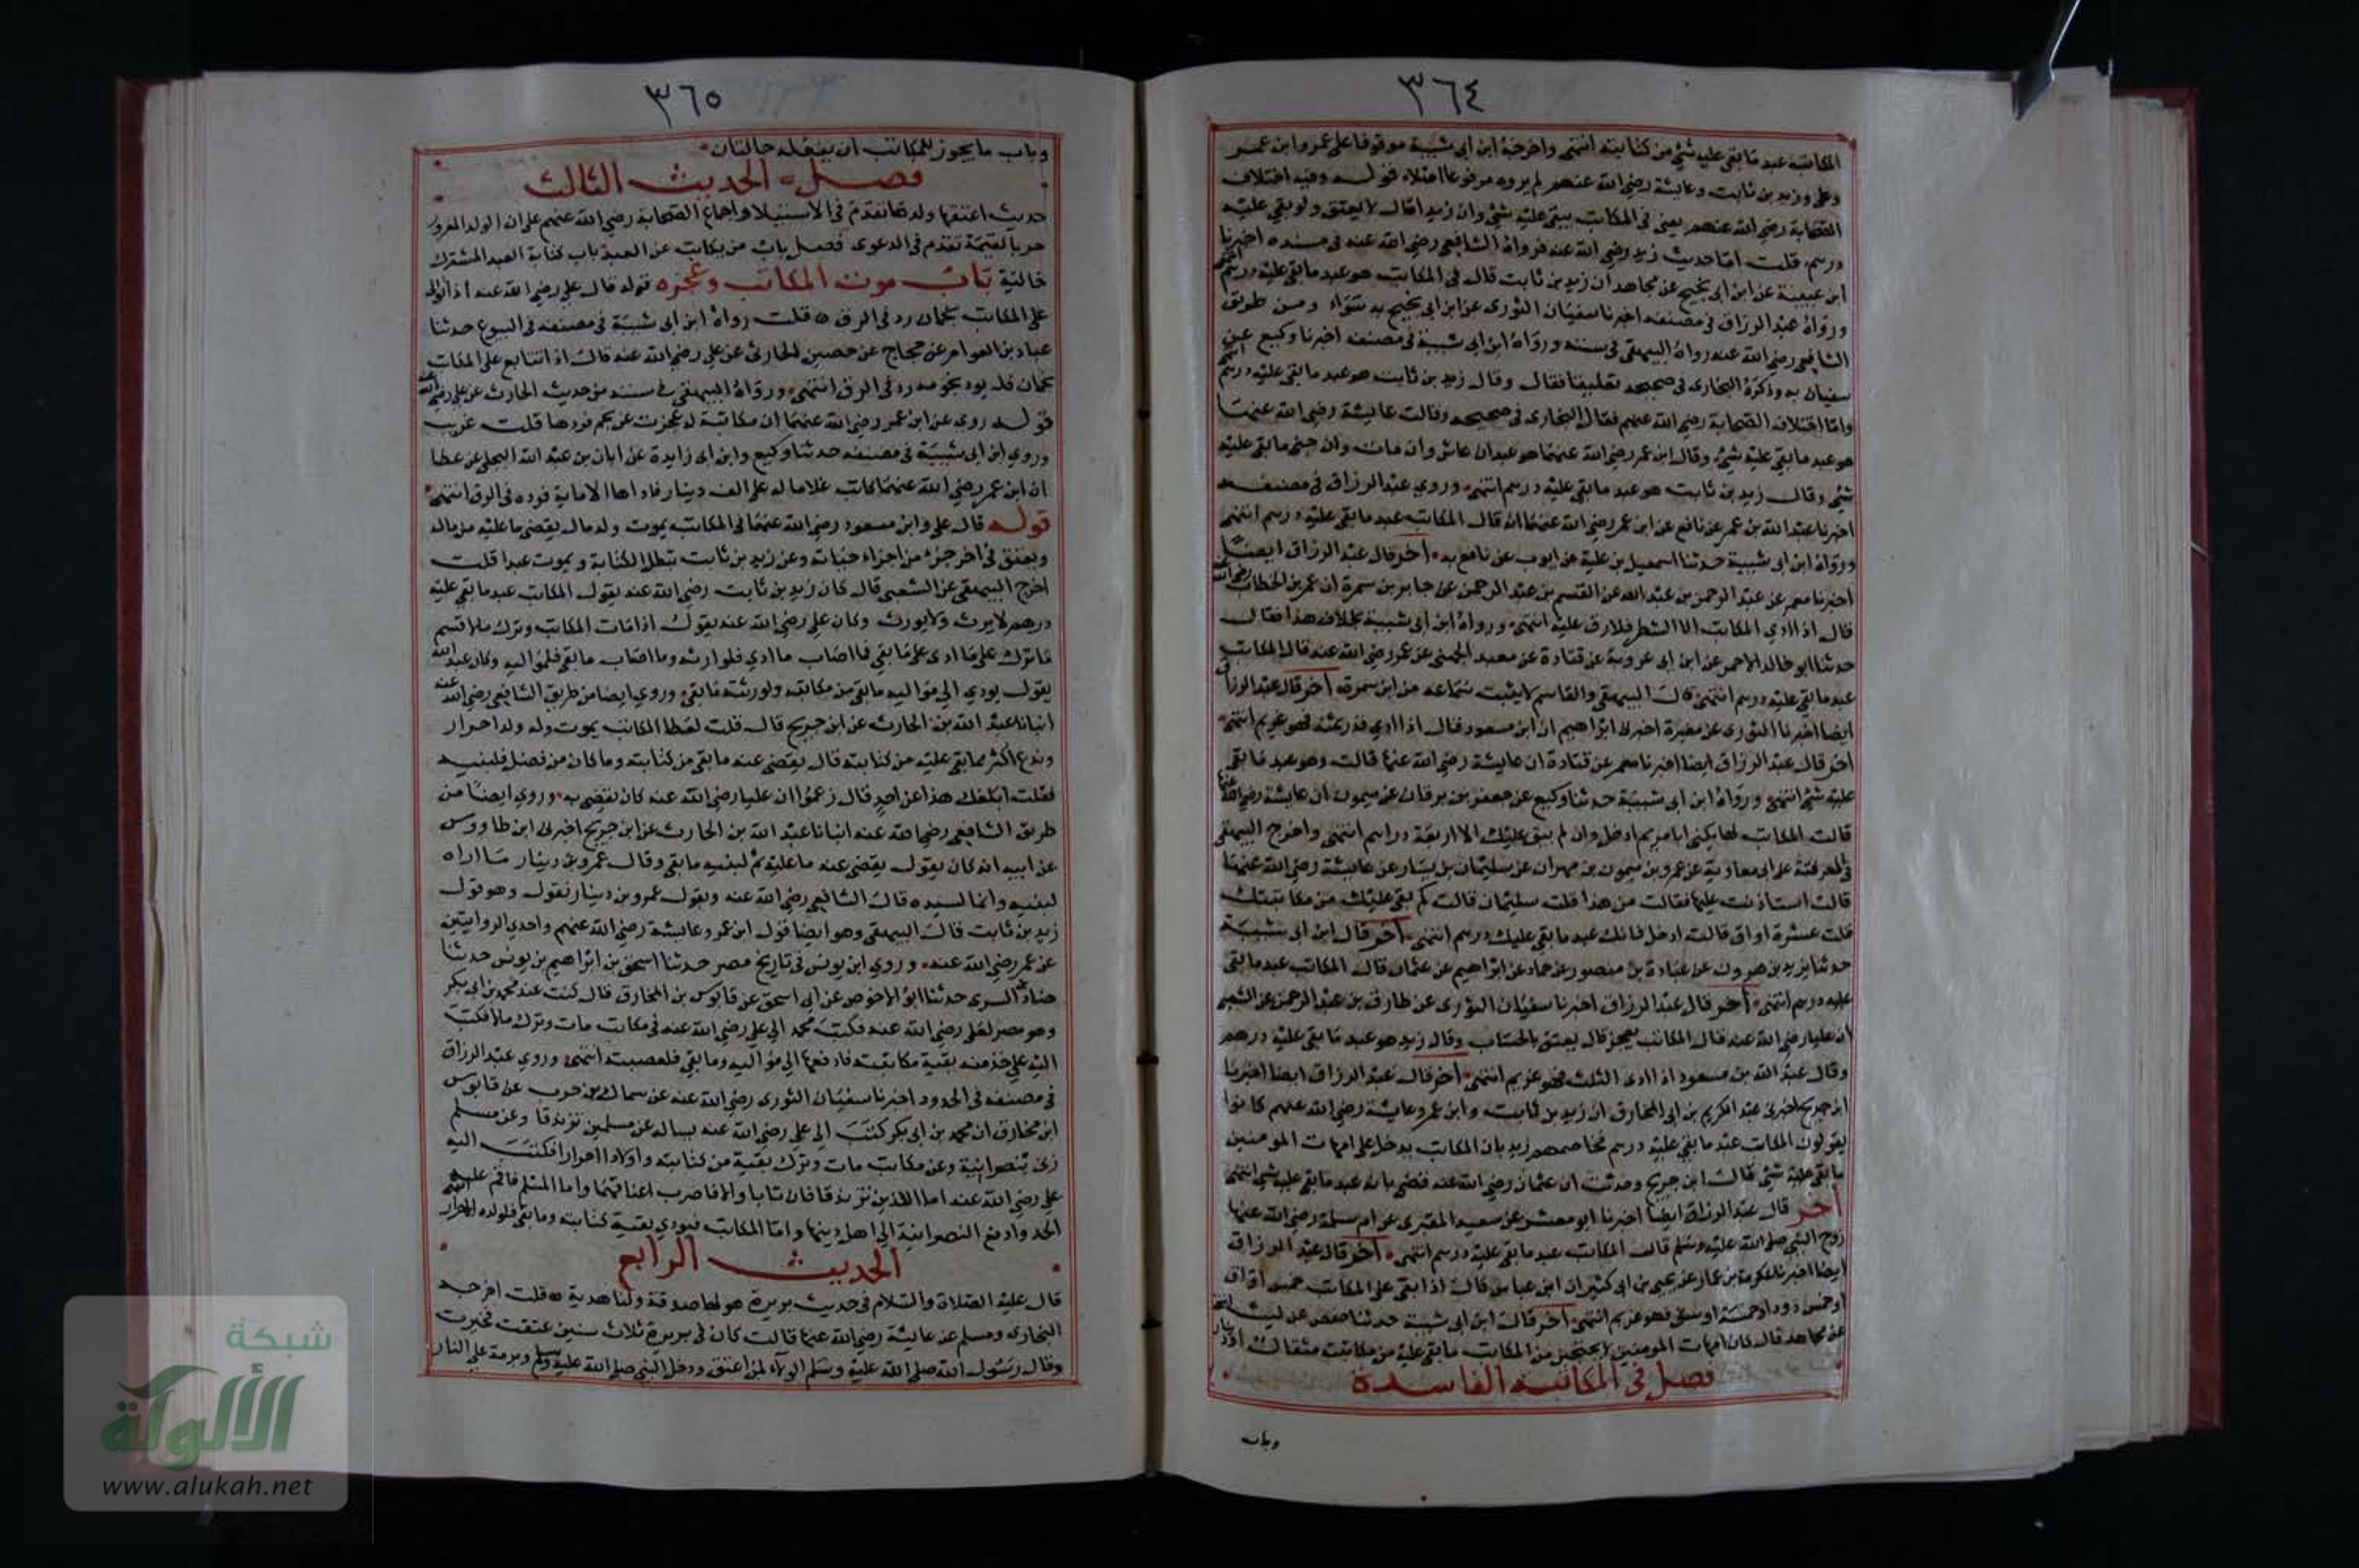 ٣٦٤
المكاتب عبد ما بقي عليه شئ من كتابته انتهى واخرجه ابن ابى شيبة موقوفا على عمر وابن عمر
وعلى وزيد بن ثابت وعايشة رضي الله عنهم لم يروه مرفوعا اصلا قوله وفيه اختلاف
الصحابة رضي الله عنهم يعنى فى المكاتب يبقى عليه شئ وان زيدا قال لا يعتق ولو بقي عليه
درهم قلت اما حديث زيد رضي الله عنه فرواه الشافعي رضي الله عنه فى مسنده اخبرنا
ابن عيينة عن ابن ابى نجيح عن مجاهد ان زيد بن ثابت قال فى المكاتب هو عبد ما بقي عليه درهم انتهى
ورواه عبد الرزاق فى مصنفه اخبرنا سفيان الثورى عن ابن ابى نجيح به سواء ومن طريق
الشافعي رضي الله عنه رواه البيهقى فى سننه ورواه ابن ابى شيبة فى مصنفه اخبرنا وكيع عن
سفيان به وذكره البخارى فى صحيحه تعليقا فقال وقال زيد بن ثابت هو عبد ما بقي عليه درهم انتهى
واما اختلاف الصحابة رضي الله عنهم فقال البخارى فى صحيحه وقالت عايشة رضي الله عنها
هو عبد ما بقي عليه شئ وقال ابن عمر رضي الله عنهما هو عبد ان عاش وان مات وان جنى ما بقي عليه
شئ وقال زيد بن ثابت هو عبد ما بقي عليه درهم انتهى وروى عبد الرزاق فى مصنفه
اخبرنا عبد الله بن عمر عن نافع عن ابن عمر رضي الله عنهما ان قال المكاتب عبد ما بقي عليه درهم انتهى
ورواه ابن ابى شيبة حدثنا اسمعيل بن علية عن ايوب عن نافع به اخر قال عبد الرزاق ايضا
اخبرنا معمر عن عبد الرحمن بن عبد الله عن القسم بن عبد الرحمن عن جابر بن سمرة ان عمر بن الخطاب رضي الله
قال اذا ادي المكاتب الشطر فلا رق عليه انتهى ورواه ابن ابى شيبة بخلاف هذا فقال
حدثنا ابو خالد الاحمر عن ابن ابى عروبة عن قتادة عن معبد الجهنى عن عمر رضي الله عنه قال المكاتب
عبد ما بقي عليه درهم انتهى قال البيهقى والقاسم لا يثبت سماعه من ابن سمرة اخر قال عبد الرزاق
ايضا اخبرنا الثورى عن مغيرة اخبرنى ابراهيم ان ابن مسعود قال اذا ادي قدر ثمنه فهو غريم انتهى
اخر قال عبد الرزاق ايضا اخبرنا معمر عن قتادة ان عايشة رضي الله عنها قالت وهو عبد ما بقي
عليه شئ انتهى ورواه ابن ابى شيبة حدثنا وكيع عن جعفر بن برقان عن ميمون ان عايشة رضي الله عنها
قالت لمكاتب لها يكنى ابا مريم ادخل وان لم يبق عليك الا اربعة دراهم انتهى واخرج البيهقى
فى المعرفة عن ابى معاوية عن عمرو بن ميمون بن مهران عن سليمان بن يسار عن عايشة رضي الله عنها
قال استاذنت عليها فقالت من هذا قلت سليمان قالت كم بقي عليك من مكاتبتك
قلت عشرة اواق قالت ادخل فانك عبد ما بقي عليك درهم انتهى اخر قال ابن ابى شيبة
حدثنا يزيد بن هرون عن عبادة بن منصور عن حماد عن ابراهيم عن عثمان قال المكاتب عبد ما بقي
عليه درهم انتهى اخر قال عبد الرزاق اخبرنا سفيان الثورى عن طارق بن عبد الرحمن عن الشعبى
ان عليا رضي الله عنه قال المكاتب يعجز قال يعتق بالحساب وقال زيد هو عبد ما بقي عليه درهم
وقال عبد الله بن مسعود اذا ادى الثلث فهو غريم انتهى اخر قال عبد الرزاق ايضا اخبرنا
ابن جريج اخبرنى عبد الكريم بن ابى المخارق ان زيد بن ثابت وابن عمر وعايشة رضي الله عنهم كانوا
يقولون المكاتب عبد ما بقي عليه درهم فخاصمهم زيد بان المكاتب يدخل على امهات المومنين
ما بقي عليه شئ قال ابن جريج وحدثت ان عثمان رضي الله عنه قضى بانه عبد ما بقي عليه شئ انتهى
اخر قال عبد الرزاق ايضا اخبرنا ابو معشر عن سعيد المقبرى عن ام سلمة رضي الله عنها
زوج النبي صلى الله عليه وسلم قالت المكاتب عبد ما بقي عليه درهم انتهى اخر قال عبد الرزاق
ايضا اخبرنا عكرمة بن عمار عن يحيى بن ابى كثير ان ابن عباس قال اذا بقي على المكاتب خمس اواق
او خمس ذود او خمسة اوسق فهو غريم انتهى اخر قال ابن ابى شيبة حدثنا حفص عن ليث
عن مجاهد قال كان امهات المومنين لا يحتجبن من المكاتب ما بقي عليه من مكاتبته مثقال او دينار انتهى
فصل فى المكاتبة الفاسدة
وباب
٣٦٥
وباب ما يجوز للمكاتب ان يفعله خاليان
فصل الحديث الثالث
حديث اعتقها ولدها تقدم فى الاستيلاد واجماع الصحابة رضي الله عنهم على ان الولد المغرور
حر بالقيمة تقدم فى الدعوى فصل باب من يكاتب عن العبد باب كتابة العبد المشترك
خالية باب موت المكاتب وعجزه قوله قال علي رضي الله عنه اذا توالى
على المكاتب نجمان رد فى الرق قلت رواه ابن ابى شيبة فى مصنفه فى البيوع حدثنا
عباد بن العوام عن حجاج عن حصين الحارثى عن علي رضي الله عنه قال اذا تتابع على المكاتب
نجمان فلم يود نجومه رد فى الرق انتهى ورواه البيهقى فى سننه من حديث الحارث عن علي رضي الله عنه
قوله روى عن ابن عمر رضي الله عنهما ان مكاتبة له عجزت عن نجم فردها قلت غريب
وروى ابن ابى شيبة فى مصنفه حدثنا وكيع وابن ابى زايدة عن ابان بن عبد الله البجلى عن عطا
ان ابن عمر رضي الله عنهما كاتب غلاما له على الف دينار فاداها الا ماية فرده فى الرق انتهى
قوله قال علي وابن مسعود رضي الله عنهما فى المكاتب يموت وله مال يقضى ما عليه من ماله
ويعتق فى اخر جزء من اجزاء حياته وعن زيد بن ثابت تبطل الكتابة ويموت عبدا قلت
اخرج البيهقى عن الشعبى قال كان زيد بن ثابت رضي الله عنه يقول المكاتب عبد ما بقي عليه
درهم لا يرث ولا يورث وكان علي رضي الله عنه يقول اذا مات المكاتب وترك مالا قسم
ما ترك على ما ادى وعلى ما بقي فما اصاب ما ادي فلوارثه وما اصاب ما بقي فلمواليه وكان عبد الله
يقول يودي الى مواليه ما بقي من مكاتبته ولورثته ما بقي وروى ايضا من طريق الشافعي رضي الله عنه
انبانا عبد الله بن الحارث عن ابن جريج قال قلت لعطا المكاتب يموت وله ولد احرار
ويدع اكثر مما بقي عليه من كتابته قال يقضى عنه ما بقي من كتابته وما كان من فضل فلبنيه
فقلت ابلغك هذا عن احد قال زعموا ان عليا رضي الله عنه كان يقضى به وروي ايضا من
طريق الشافعي رضي الله عنه انبانا عبد الله بن الحارث عن ابن جريج اخبرنى ابن طاووس
عن ابيه انه كان يقول يقضى عنه ما عليه ثم لبنيه ما بقي وقال عمرو بن دينار ما اراه
لبنيه وانما لسيده قال الشافعي رضي الله عنه وبقول عمرو بن دينار نقول وهو قول
زيد بن ثابت قال البيهقى وهو ايضا قول ابن عمر وعايشة رضي الله عنهم واحدي الروايتين
عن عمر رضي الله عنه وروي ابن يونس فى تاريخ مصر حدثنا اسحق بن ابراهيم بن يونس حدثنا
هناد بن السرى حدثنا ابو الاحوص عن ابى اسحق عن قابوس بن المخارق قال كنت عند محمد بن ابى بكر
وهو مصر لعلى رضي الله عنه فكتب محمد الى علي رضي الله عنه فى مكاتب مات وترك مالا فكتب
اليه علي خذ منه بقية مكاتبته فادفعها الى مواليه وما بقي فلعصبته انتهى وروي عبد الرزاق
فى مصنفه فى الحدود اخبرنا سفيان الثورى رضي الله عنه عن سماك بن حرب عن قابوس
ابن مخارق ان محمد بن ابى بكر كتب الى علي رضي الله عنه يساله عن مسلمين تزندقا وعن مسلم
زنى بنصرانية وعن مكاتب مات وترك بقية من كتابته واولادا احرارا فكتب اليه
علي رضي الله عنه اما اللذين تزندقا فان تابا والا فاضرب اعناقهما واما المسلم فاقم عليه
الحد وادفع النصرانية الى اهل دينها واما المكاتب فيودي بقية كتابته وما بقي فلولده الاحرار انتهى
الحديث الرابع
قال عليه الصلاة والسلام فى حديث بريرة هو لها صدقة ولنا هدية قلت اخرجه
البخارى ومسلم عن عايشة رضي الله عنها قالت كان فى بريرة ثلاث سنين عتقت فخيرت
وقال رسول الله صلى الله عليه وسلم الولاء لمن اعتق ودخل النبي صلى الله عليه وسلم وبرمة على النار
شبكة
الألوكة
www.alukah.net